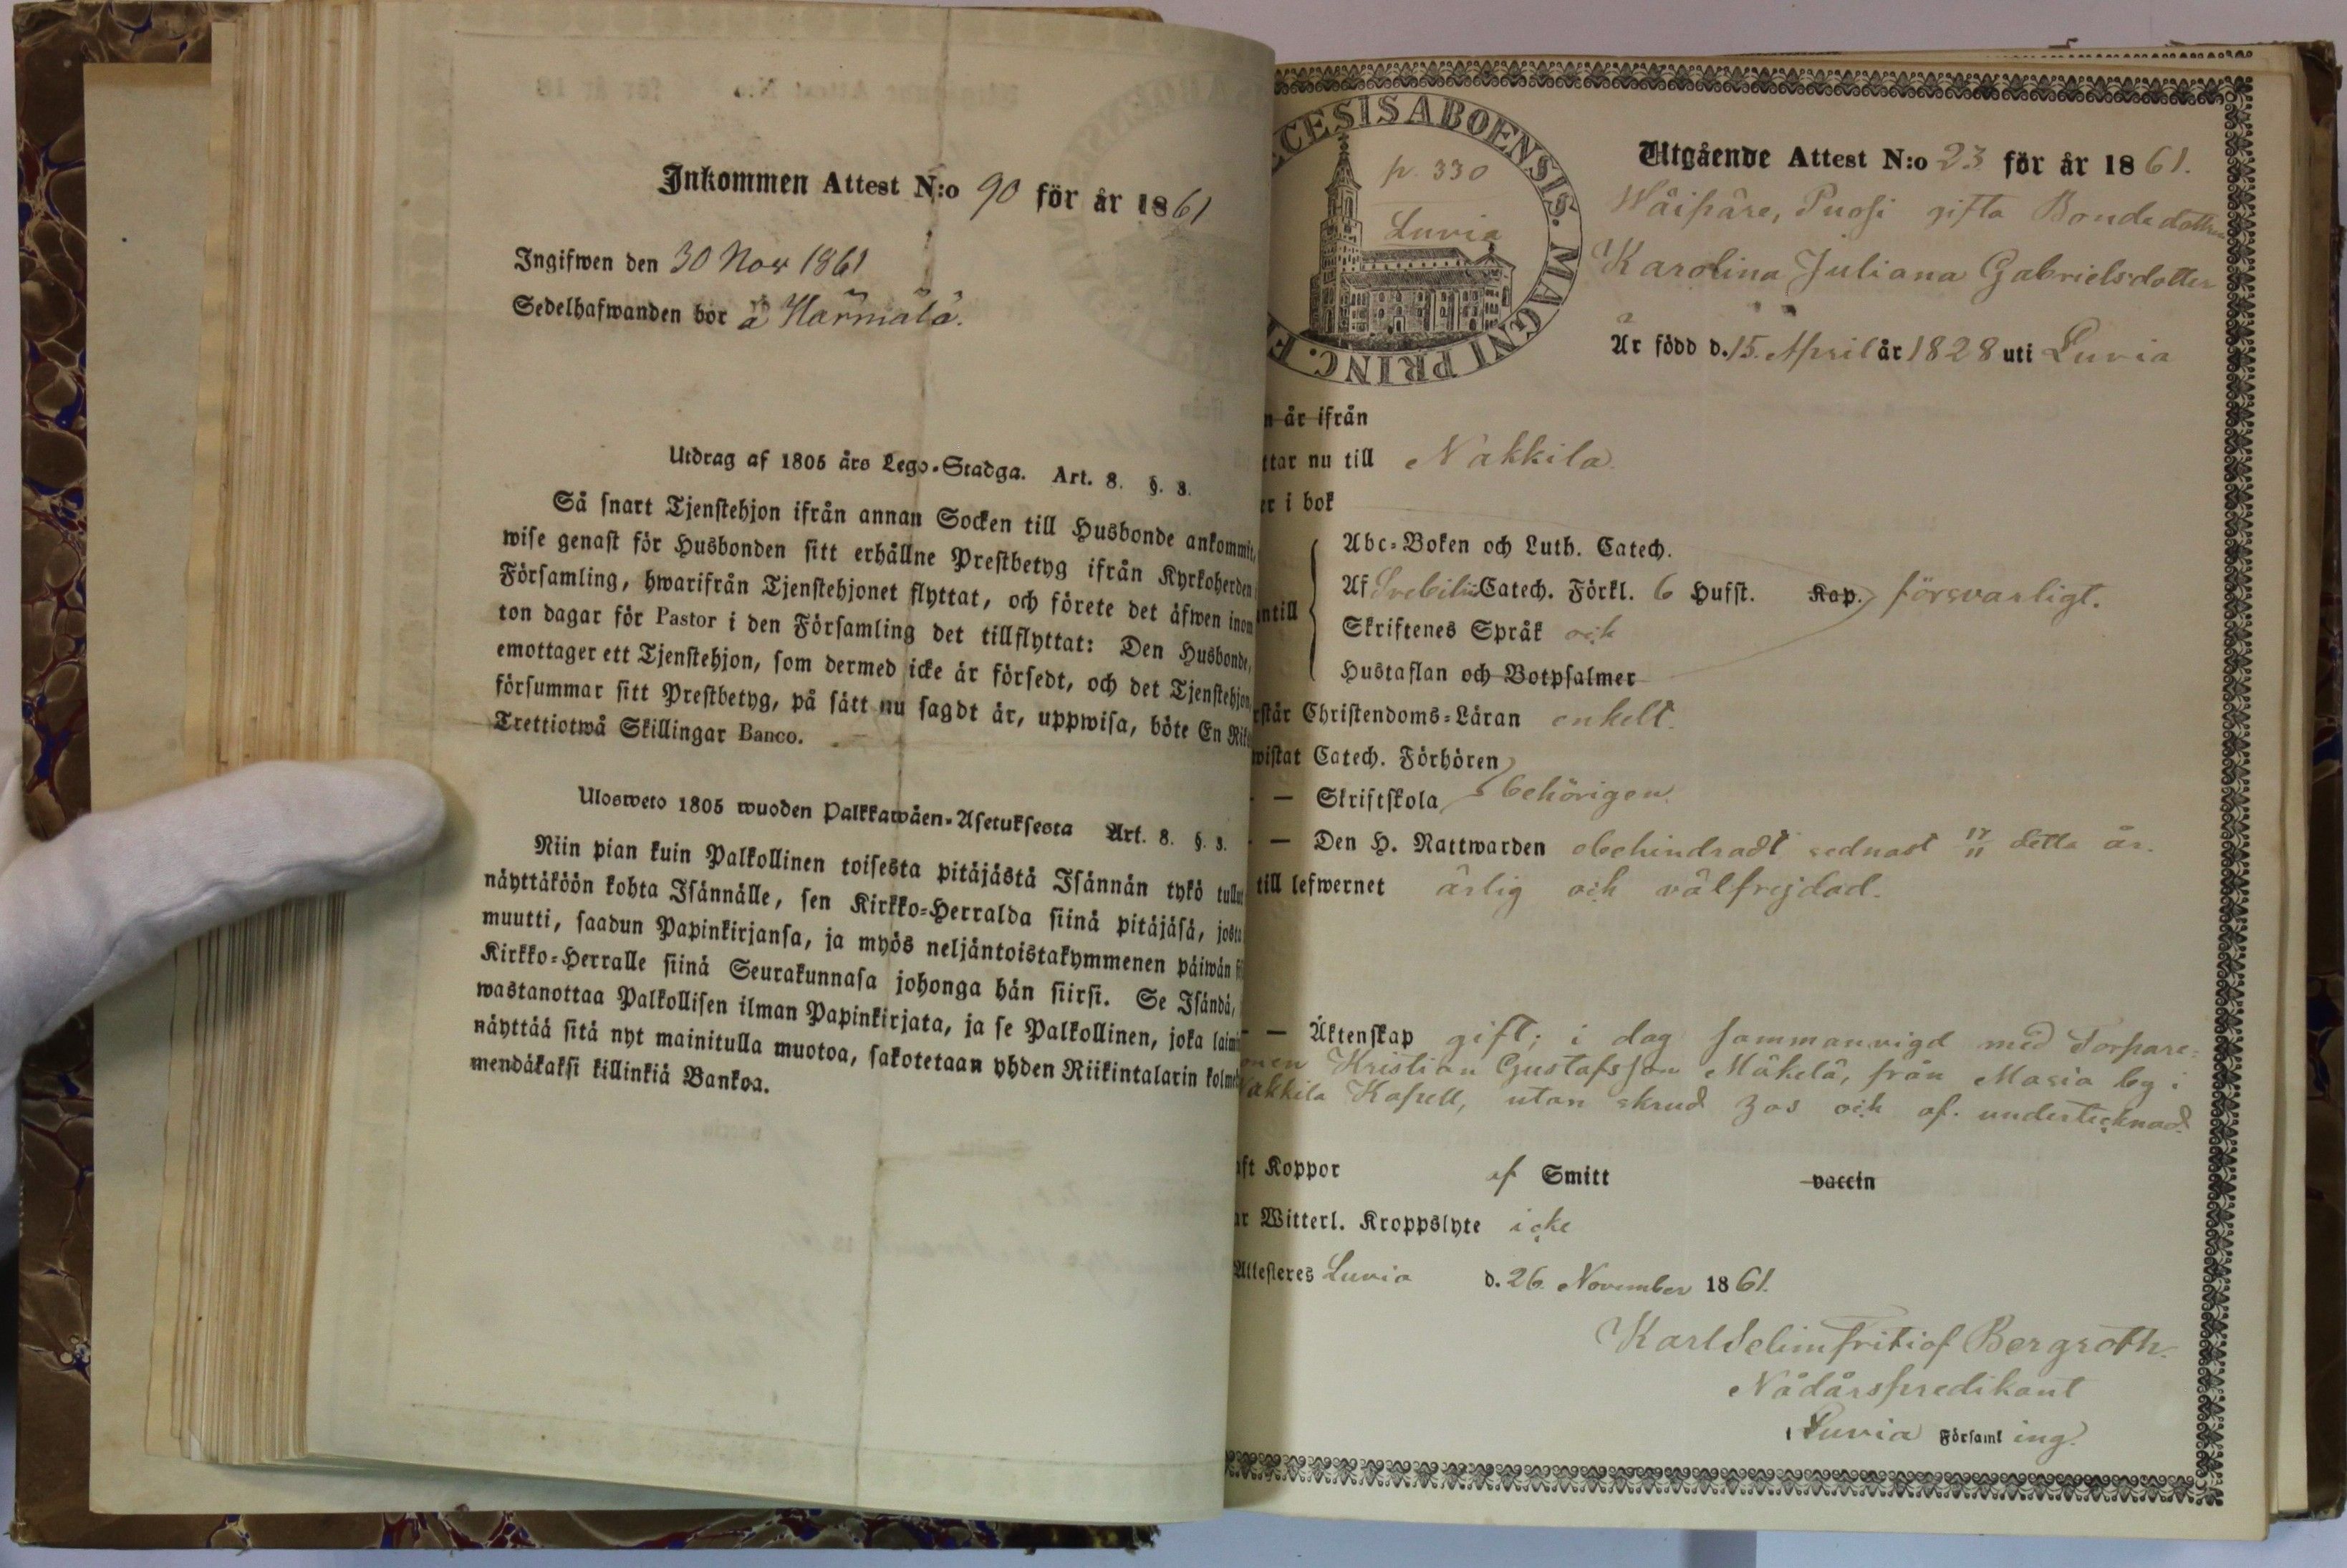 Inkommen Attest N:o 90 för år 1861
Ingifwen den 30 Nov 1861
Sedelhafwanden bor å Härmälä.
Utdrag af 1805 års Lego-Stadga. Art. 8. §. 3.
Så snart Tjenstehjon ifrån annan Socken till Husbonde ankommit,
wise genast för Husbonden sitt erhållne Prestbetyg ifrån Kyrkoherden
Församling, hwarifrån Tjenstehjonet flyttat, och förete det äfwen inom
ton dagar för Pastor i den Församling det tillflyttat: Den Husbonde,
emottager ett Tjenstehjon, som dermed icke är försedt, och det Tjenstehjon,
försummar sitt Prestbetyg, på sätt nu sagdt är, uppwisa, böte En Riks
Trettiotwå Skillingar Banco.
Ulosweto 1805 wuoden Palkkawäen-Asetuksesta Art. 8. §. 3.
Niin pian kuin Palkollinen toisesta pitäjästä Isännän tykö tullut
näyttäköön kohta Isännälle, sen Kirkko-Herralda siinä pitäjäsä, josta
muutti, saadun Papinkirjansa, ja myös neljäntoistakymmenen päiwän si
Kirkko-Herralle siinä Seurakunnasa johonga hän siirsi. Se Isändä,
wastanottaa Palkollisen ilman Papinkirjata, ja se Palkollinen, joka laimi
näyttää sitä nyt mainitulla muotoa, sakotetaan yhden Riikintalarin kolme
mendäkaksi killinkiä Bankoa.
CESIS ABOENSIS. MAGNI PRINC. F
p. 330
Luvia
Utgående Attest N:o 23 för år 1861.
Wäipäre, Puosi gifta Bondedottren
Karolina Juliana Gabrielsdotter
Är född d. 15. April år 1828 uti Luvia
n är ifrån
ttar nu till Nakkila.
er i bok
Abc-Boken och Luth. Catech.
Af Svebilii Catech. Förkl. 6 Hufst. Kap. försvarligt.
ntill
Skriftenes Språk och
Hustaflan och Botpsalmer
rstår Christendoms-Läran enkelt.
wistat Catech. Förhören
— Skriftskola behörigen.
— Den H. Nattwarden obehindradt sednast 17/11 detta år.
till lefwernet ärlig och välfrejdad.
— Äktenskap gift; i dag sammanvigd med Torpare-
nen Kristian Gustafsson Mäkelä, från Masia by i
Nakkila Kapell, utan skrud hos och af undertecknad.
aft Koppor af Smitt vaccin
ar Witterl. Kroppslyte icke
Attesteres Luvia d. 26. November 1861.
Karl Selim Fritiof Bergroth.
Nådårspredikant
i Luvia Församling.